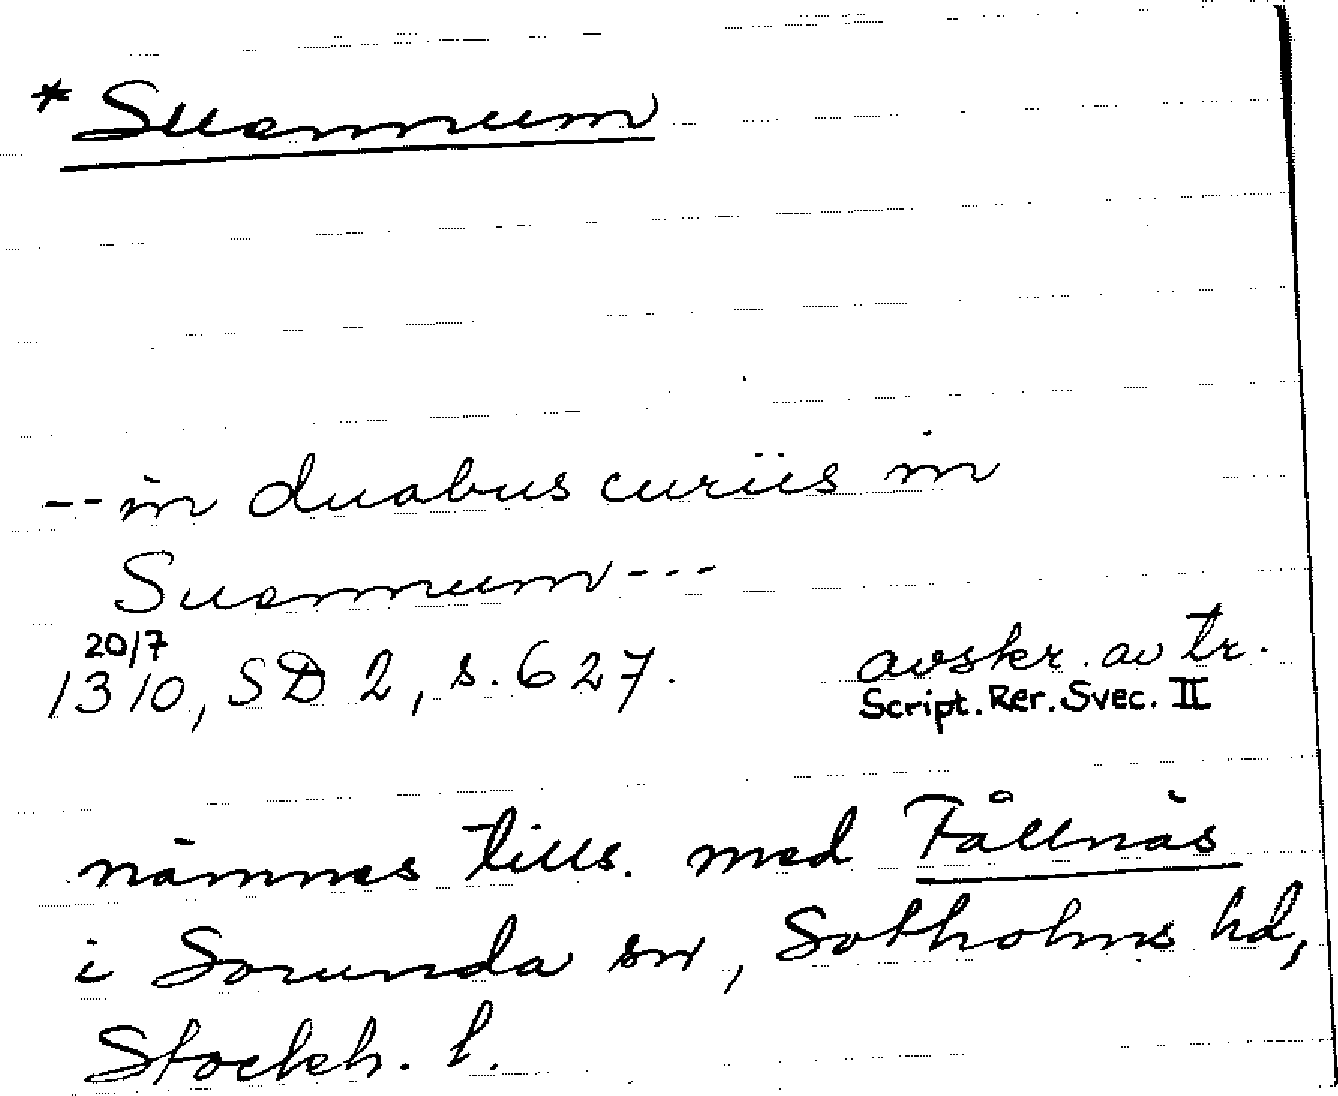 * Suennum
-- in duabus curiis in
Suennum ---
20/7
1310, SD 2, s. 627.
avskr. av tr.
Script. Rer. Svec. II
nämnes tills. med Fållnäs
i Sorunda sn, Sotholms hd,
Stockh. l.